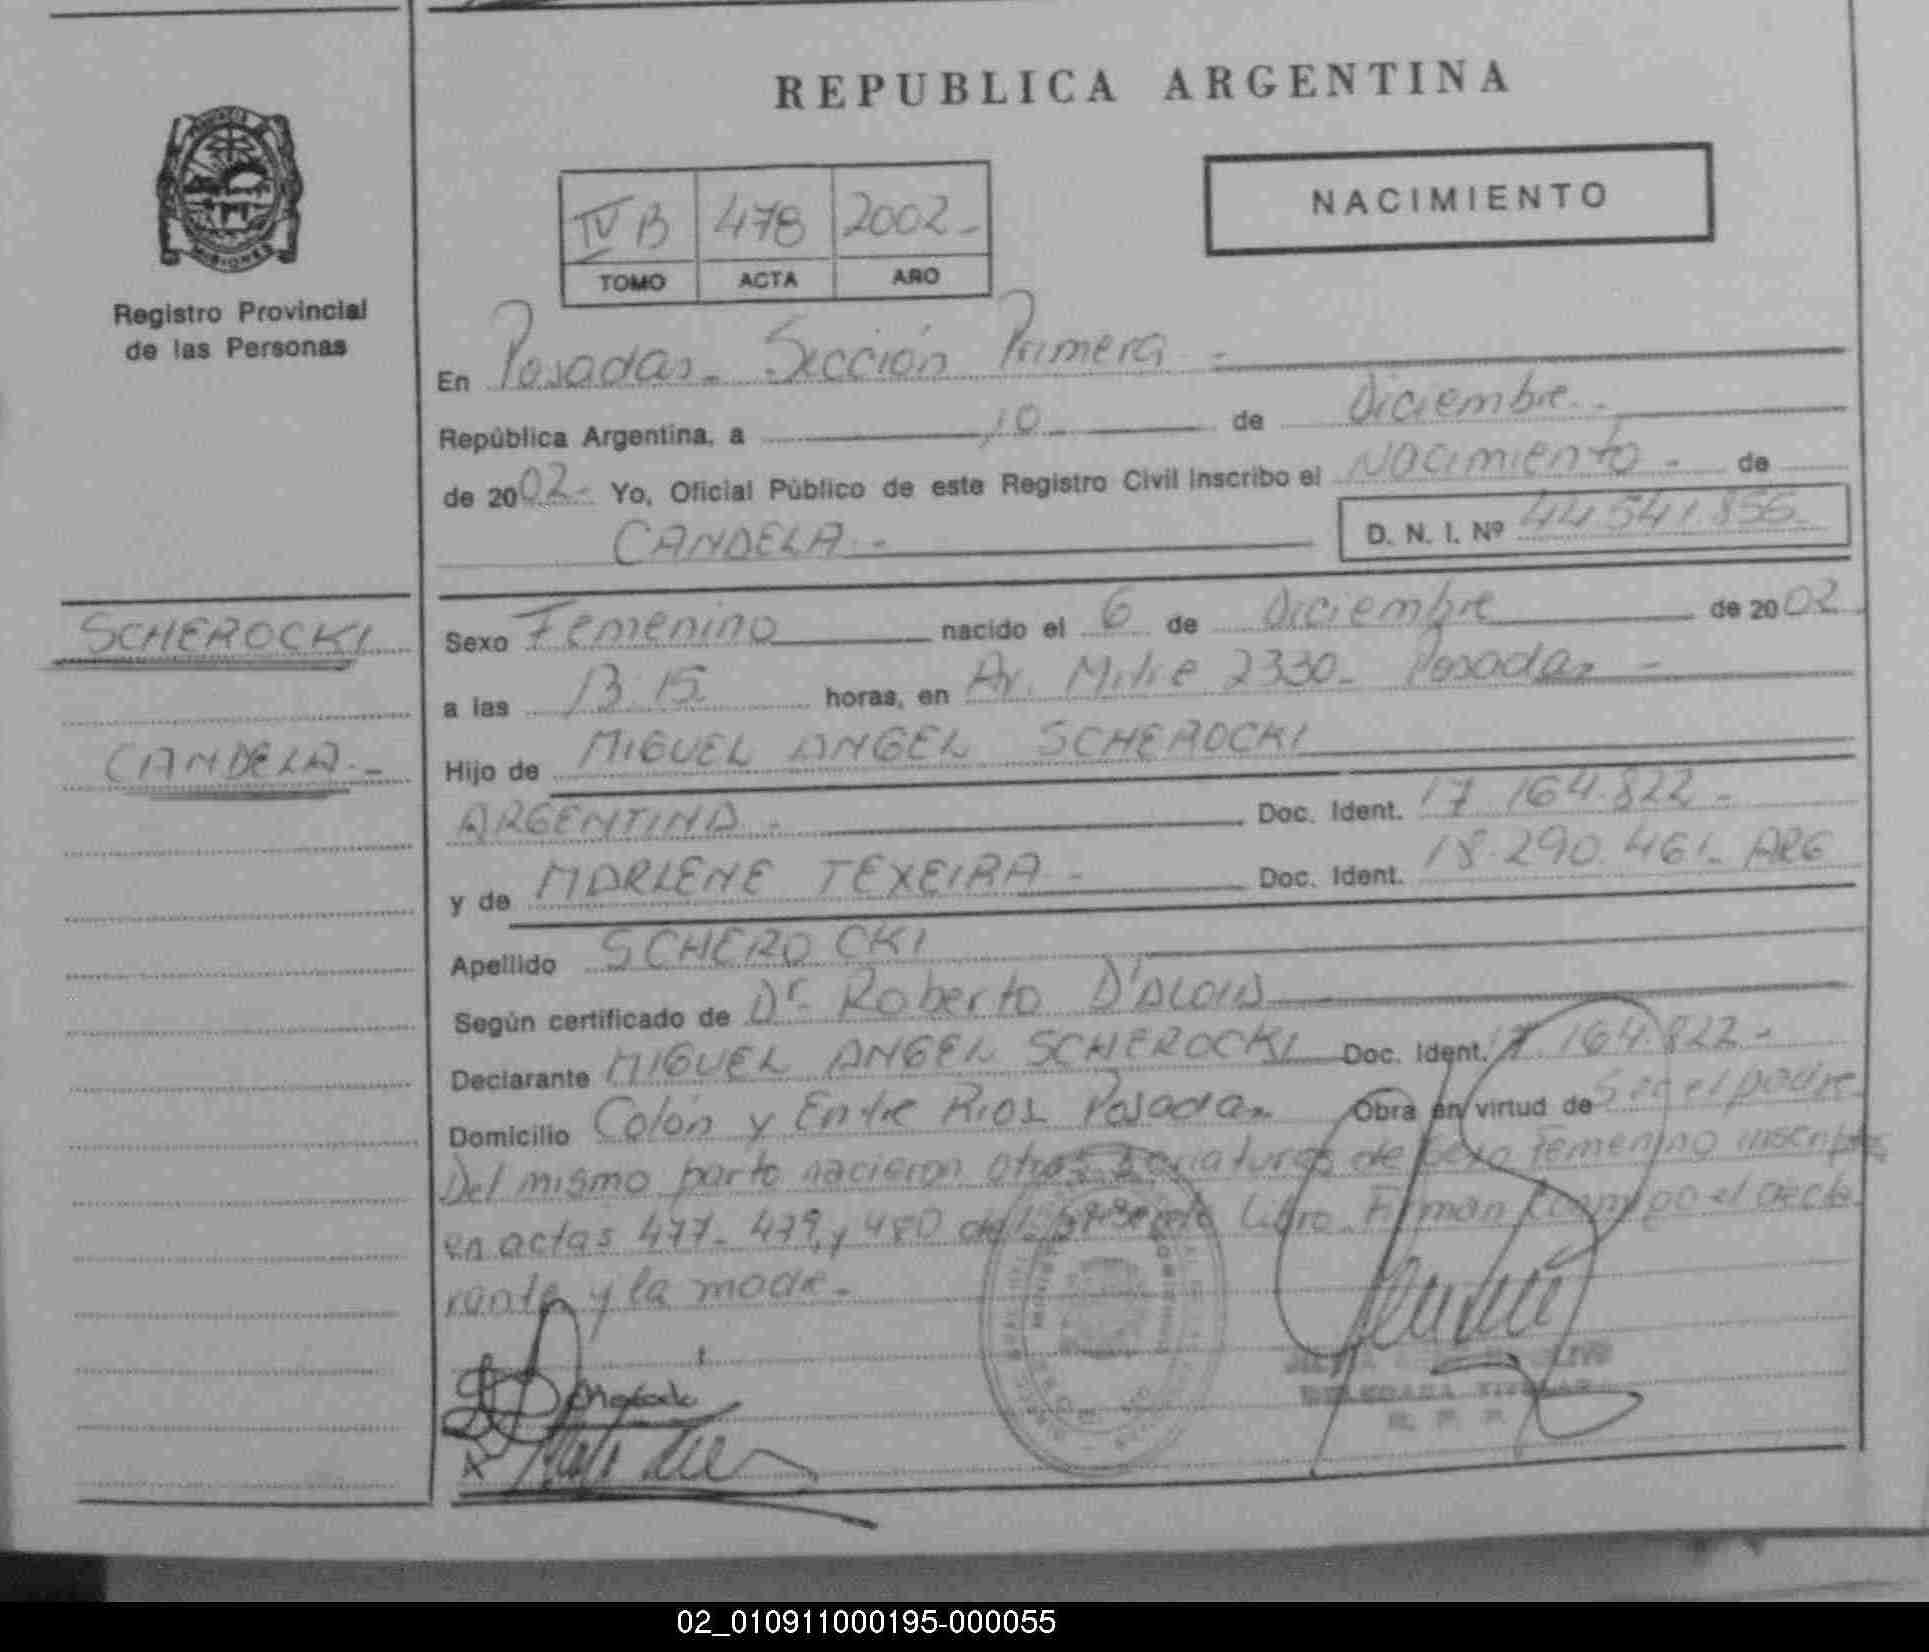 REPUBLICA ARGENTINA
NACIMIENTO
IV B 478 2002-
TOMO ACTA AÑO
MISIONES
Registro Provincial
de las Personas
En Posadas- Sección Primera -
República Argentina, a 10 de Diciembre.-
de 2002- Yo, Oficial Público de este Registro Civil inscribo el Nacimiento - de
CANDELA - D. N. I. Nº 44 541.856-
SCHEROCKI
CANDELA.-
Sexo Femenino nacido el 6 de Diciembre de 2002
a las 13:15 horas, en Av. Mitre 2330- Posadas -
Hijo de MIGUEL ANGEL SCHEROCKI
ARGENTINA - Doc. Ident. 17 164.822 -
y de MARLENE TEXEIRA - Doc. Ident. 18.290.461- ARG
Apellido SCHEROCKI
Según certificado de Dr. Roberto
Declarante MIGUEL ANGEL SCHEROCKI Doc. Ident. 17 164.822-
Domicilio Colón y Entre Rios Posadas Obra en virtud de Ser el padre.
Del mismo parto nacieron otras 3 criaturas de sexo Femenino inscriptas
en actas 477- 479 y 480 del presente Libro. Firman conmigo el decla
rante y la madre.
DELEGADA TITULAR
R. P. P.
02_010911000195-000055